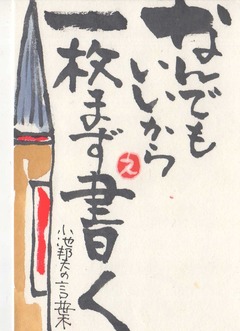 なんでも
いいから
一枚まず書く
え
小池邦夫の言葉